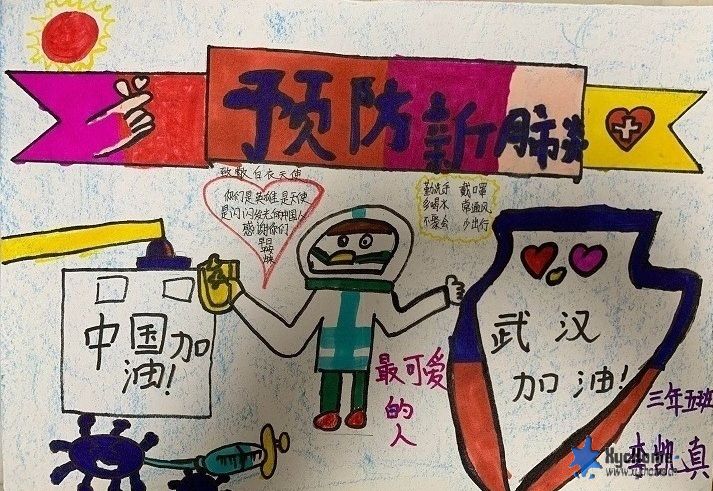 预防新肺炎
致敬白衣天使
你们是英雄是天使
是闪闪发光的中国人
感谢你们
勤洗手 戴口罩
多喝水 常通风
不聚会 少出行
中国加
油!
武汉
加油!
最可爱
的
人
三年五班
李凯真